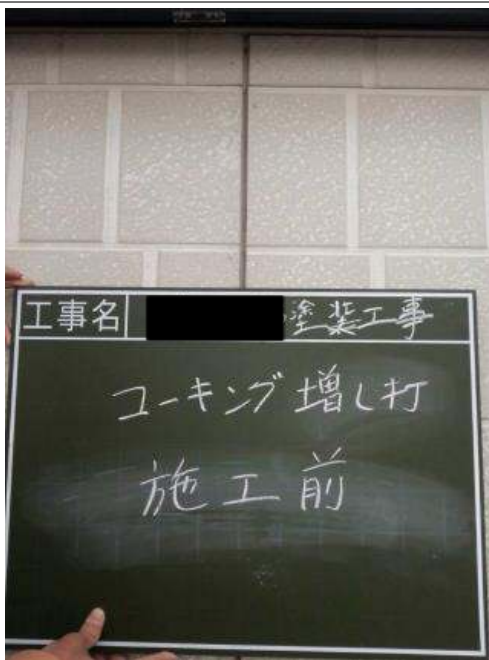 工事名 塗装工事
コーキング増し打
施工前